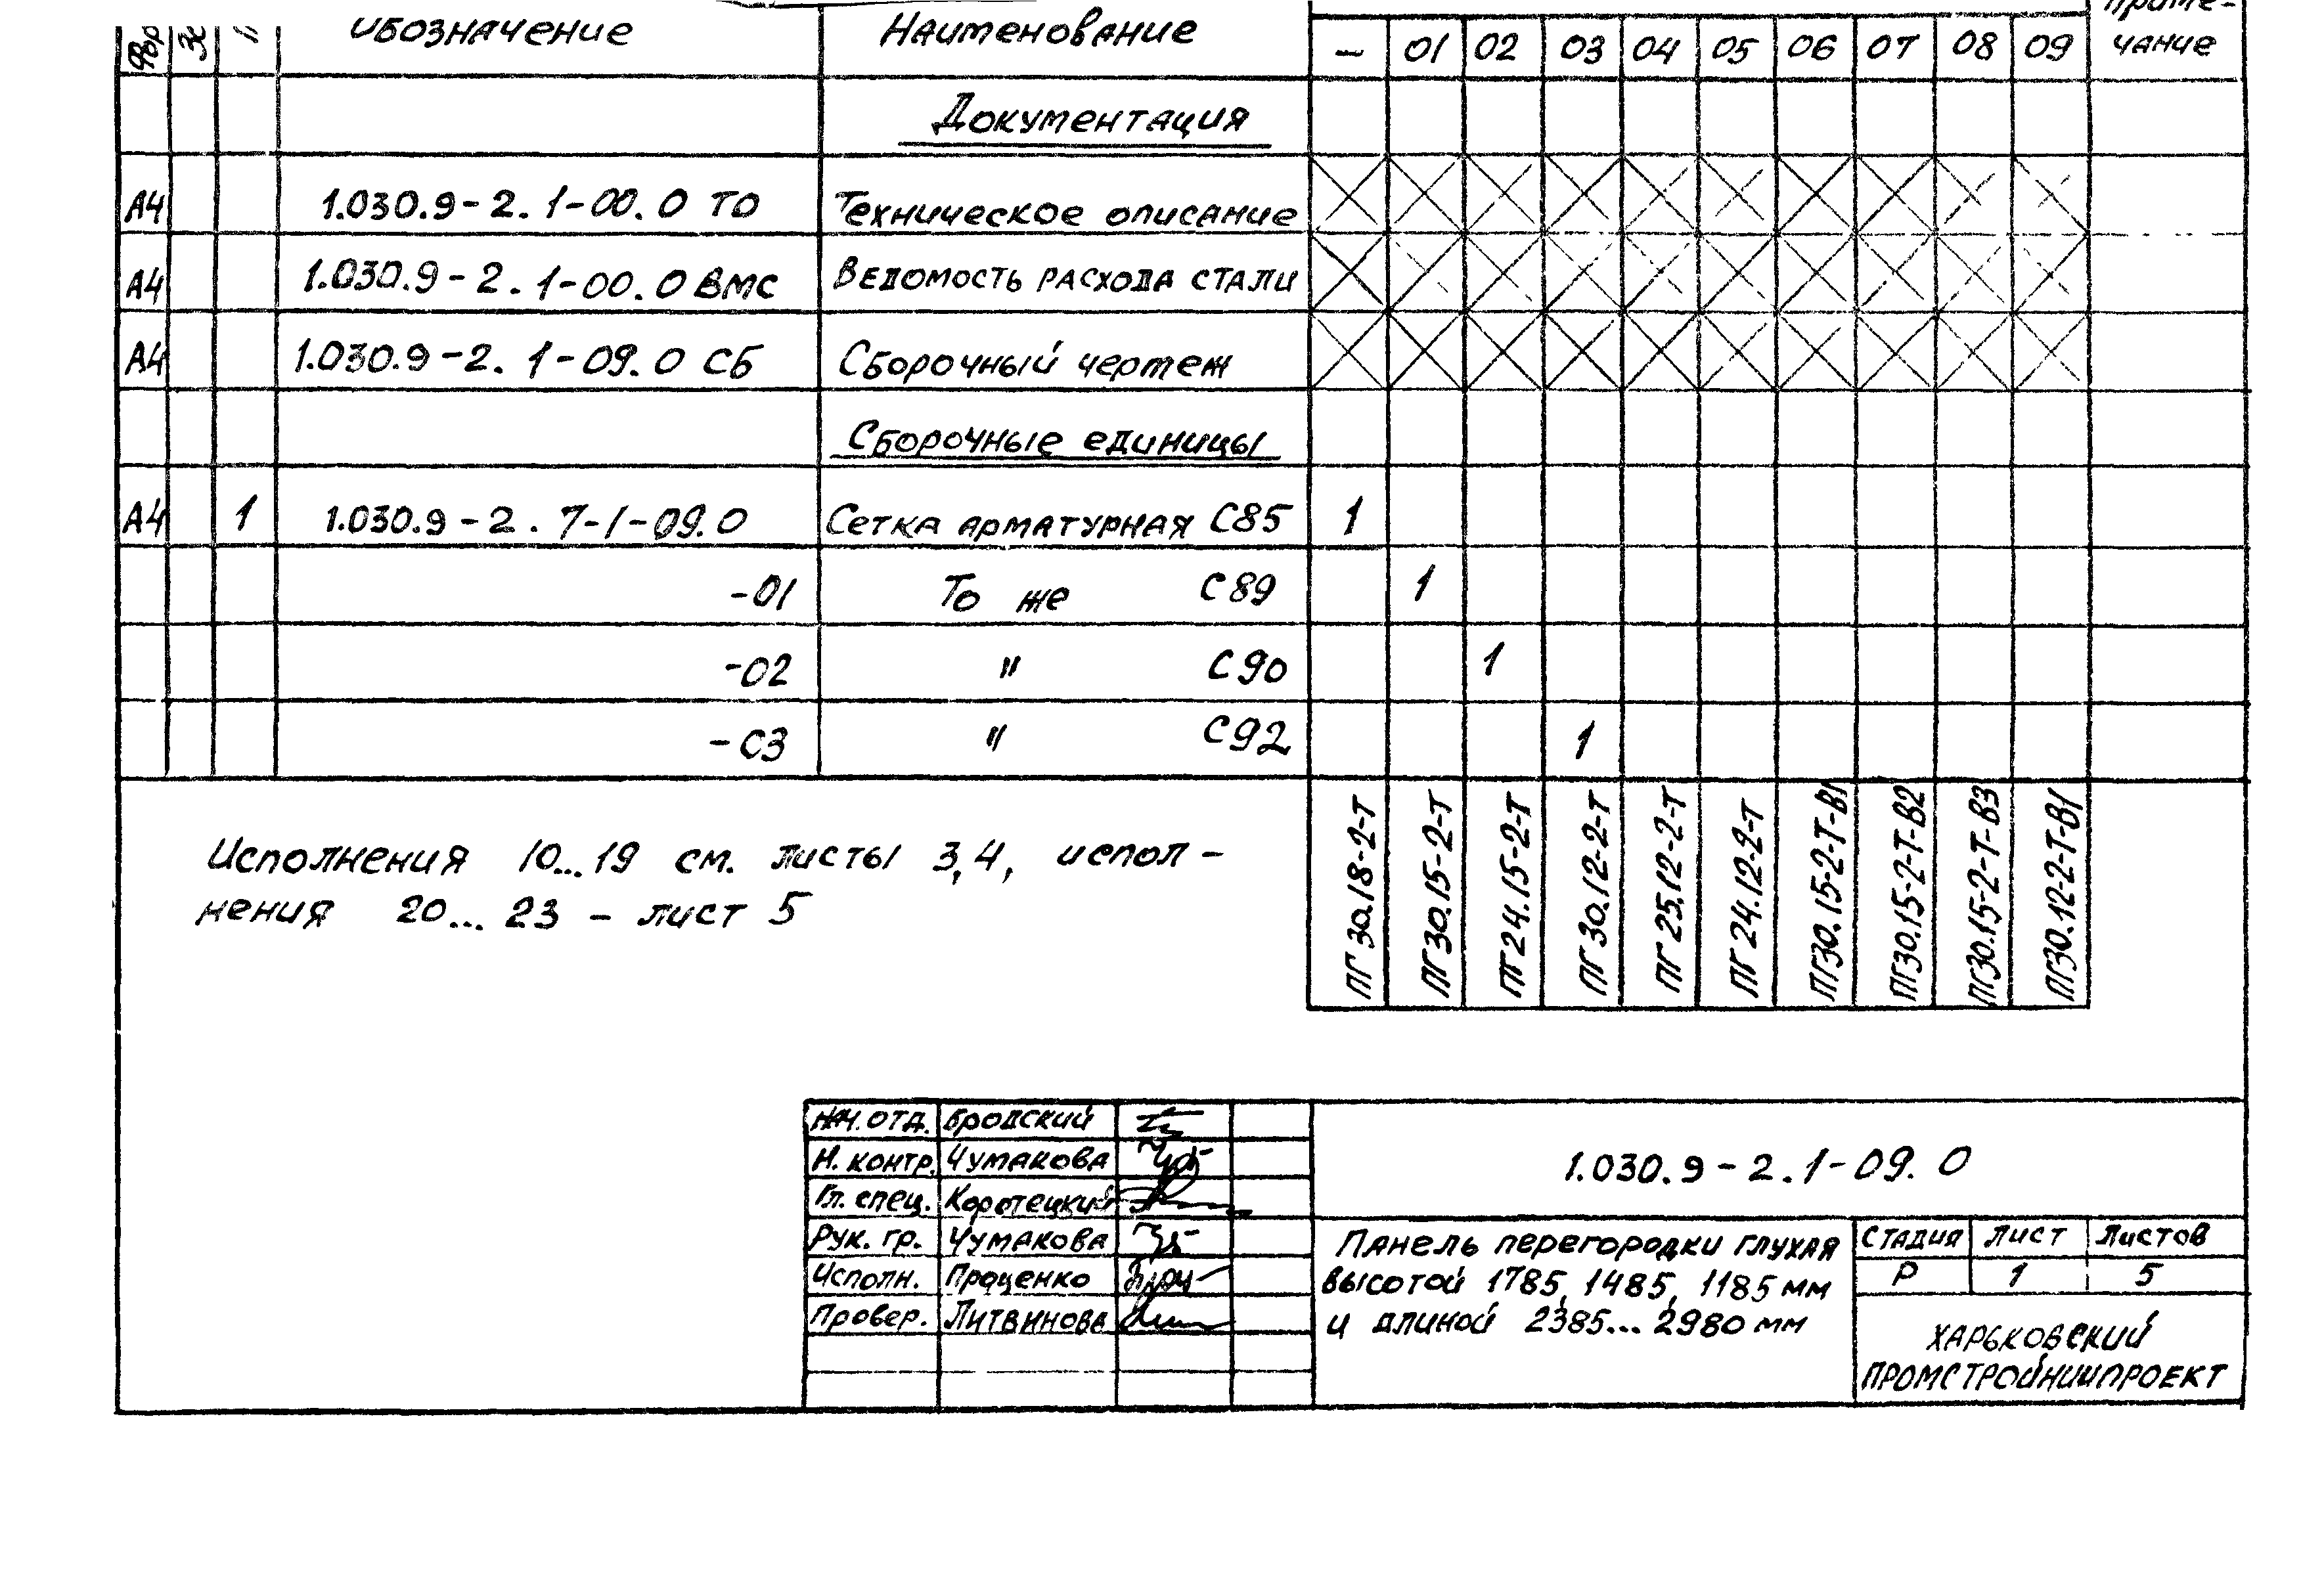 Обозначение Наименование
— 01 02 03 04 05 06 07 08 09 чание
Документация
А4 1.030.9-2.1-00.0 ТО Техническое описание
А4 1.030.9-2.1-00.0 ВМС Ведомость расхода стали
А4 1.030.9-2.1-09.0 СБ Сборочный чертеж
Сборочные единицы
А4 1 1.030.9-2.7-1-09.0 Сетка арматурная С85 1
-01 То же С89 1
-02 " С90 1
-С3 " С92 1
ПГ30.18-2-Т
ПГ30.15-2-Т
ПГ24.15-2-Т
ПГ30.12-2-Т
ПГ25.12-2-Т
ПГ24.12-2-Т
ПГ30.15-2-Т-В1
ПГ30.15-2-Т-В2
ПГ30.15-2-Т-В3
ПГ30.12-2-Т-В1
Исполнения 10...19 см. листы 3,4, испол-
нения 20...23 – лист 5
Нач. отд. Бродский
Н. контр. Чумакова
Гл. спец. Коротецкий
Рук. гр. Чумакова
Исполн. Проценко
Провер. Литвинова
1.030.9-2.1-09.0
Панель перегородки глухая
высотой 1785, 1485, 1185 мм
и длиной 2385...2980 мм
Стадия Лист Листов
Р 1 5
Харьковский
ПромстройНИИпроект